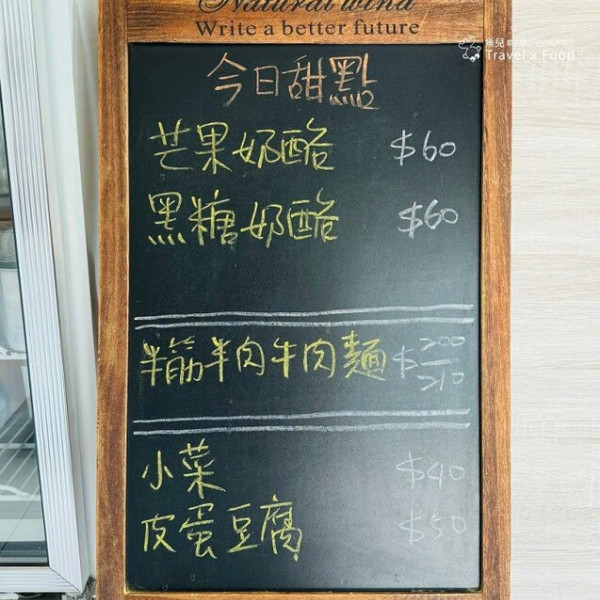 Natural wind
Write a better future
魚兒
Travel x Food
今日甜點
芒果奶酪 $60
黑糖奶酪 $60
半筋半肉牛肉麵 $200
210
小菜 $40
皮蛋豆腐 $50